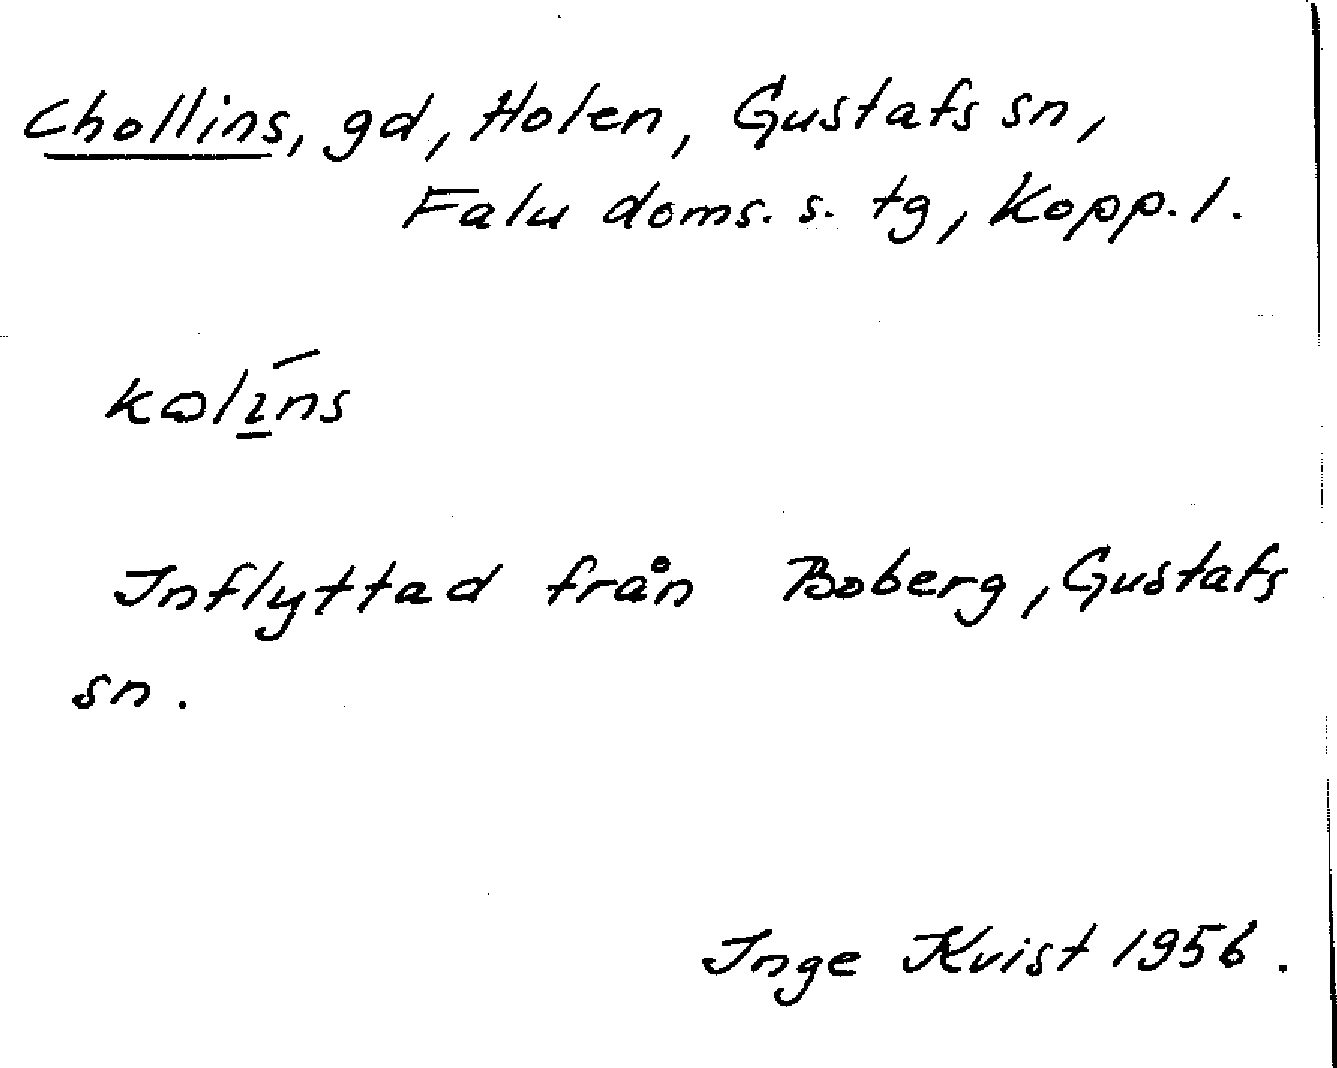 Chollins, gd, Holen, Gustafs sn,
Falu doms. s. tg, Kopp. l.
kωlı̱́ns
Inflyttad från Boberg, Gustafs
sn.
Inge Kvist 1956.